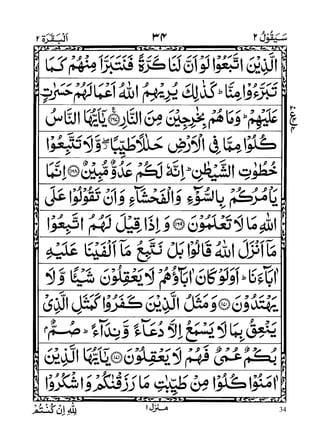 سَيَقُولُ ٢ ٣٤ اَلْبَقَرَة ٢
الَّذِيْنَ اتَّبَعُوْا لَوْ اَنَّ لَنَا كَرَّةً فَنَتَبَرَّاَ مِنْهُمْ كَمَا
تَبَرَّءُوْا مِنَّا ؕ كَذٰلِكَ يُرِيْهِمُ اللّٰهُ اَعْمَالَهُمْ حَسَرٰتٍ
عَلَيْهِمْ ؕ وَمَا هُمْ بِخٰرِجِيْنَ مِنَ النَّارِ ﴿١٦٧﴾ يٰۤاَيُّهَا النَّاسُ
كُلُوْا مِمَّا فِى الْاَرْضِ حَلٰلًا طَيِّبًا ۖ وَّلَا تَتَّبِعُوْا
خُطُوٰتِ الشَّيْطٰنِ ؕ اِنَّهٗ لَكُمْ عَدُوٌّ مُّبِيْنٌ ﴿١٦٨﴾ اِنَّمَا
يَاْمُرُكُمْ بِالسُّوْٓءِ وَالْفَحْشَآءِ وَاَنْ تَقُوْلُوْا عَلَى
اللّٰهِ مَا لَا تَعْلَمُوْنَ ﴿١٦٩﴾ وَاِذَا قِيْلَ لَهُمُ اتَّبِعُوْا
مَاۤ اَنْزَلَ اللّٰهُ قَالُوْا بَلْ نَتَّبِعُ مَاۤ اَلْفَيْنَا عَلَيْهِ
اٰبَآءَنَا ؕ اَوَلَوْ كَانَ اٰبَآؤُهُمْ لَا يَعْقِلُوْنَ شَيْئًا وَّلَا
يَهْتَدُوْنَ ﴿١٧٠﴾ وَمَثَلُ الَّذِيْنَ كَفَرُوْا كَمَثَلِ الَّذِىْ
يَنْعِقُ بِمَا لَا يَسْمَعُ اِلَّا دُعَآءً وَّنِدَآءً ؕ صُمٌّۢ
بُكْمٌ عُمْىٌ فَهُمْ لَا يَعْقِلُوْنَ ﴿١٧١﴾ يٰۤاَيُّهَا الَّذِيْنَ
اٰمَنُوْا كُلُوْا مِنْ طَيِّبٰتِ مَا رَزَقْنٰكُمْ وَاشْكُرُوْا
لِلّٰهِ اِنْ كُنْتُمْ منزل ١ 34